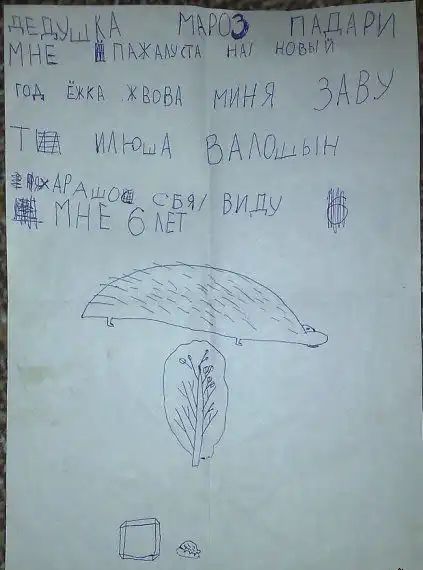 ДЕДУШКА МАРОЗ ПАДАРИ
МНЕ ПАЖАЛУСТА НА НОВЫЙ
ГОД ЁЖКА ЖВОВА МИНЯ ЗАВУ
Т ИЛЮША ВАЛОШЫН
ХАРАШО СБЯ ВИДУ
МНЕ 6 ЛЕТ